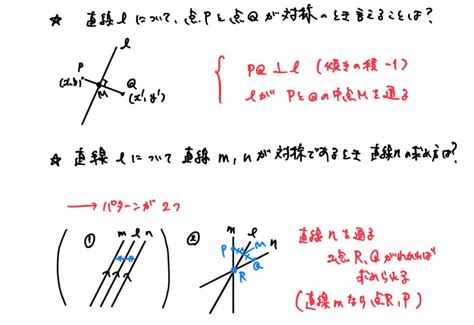 ☆ 直線 l について、点Pと点Qが対称のとき言えることは?
l
P
(x,y)
M
Q
(x',y')
PQ⊥l (傾きの積-1)
lが PとQの中点Mを通る
☆ 直線 l について 直線 m, n が対称であるとき 直線nの求め方は?
→ パターンが2つ
① m l n
② m l n
P M
Q
R
直線nを通る
2点R, Qがわかれば
求められる
(直線mなら点R, P)